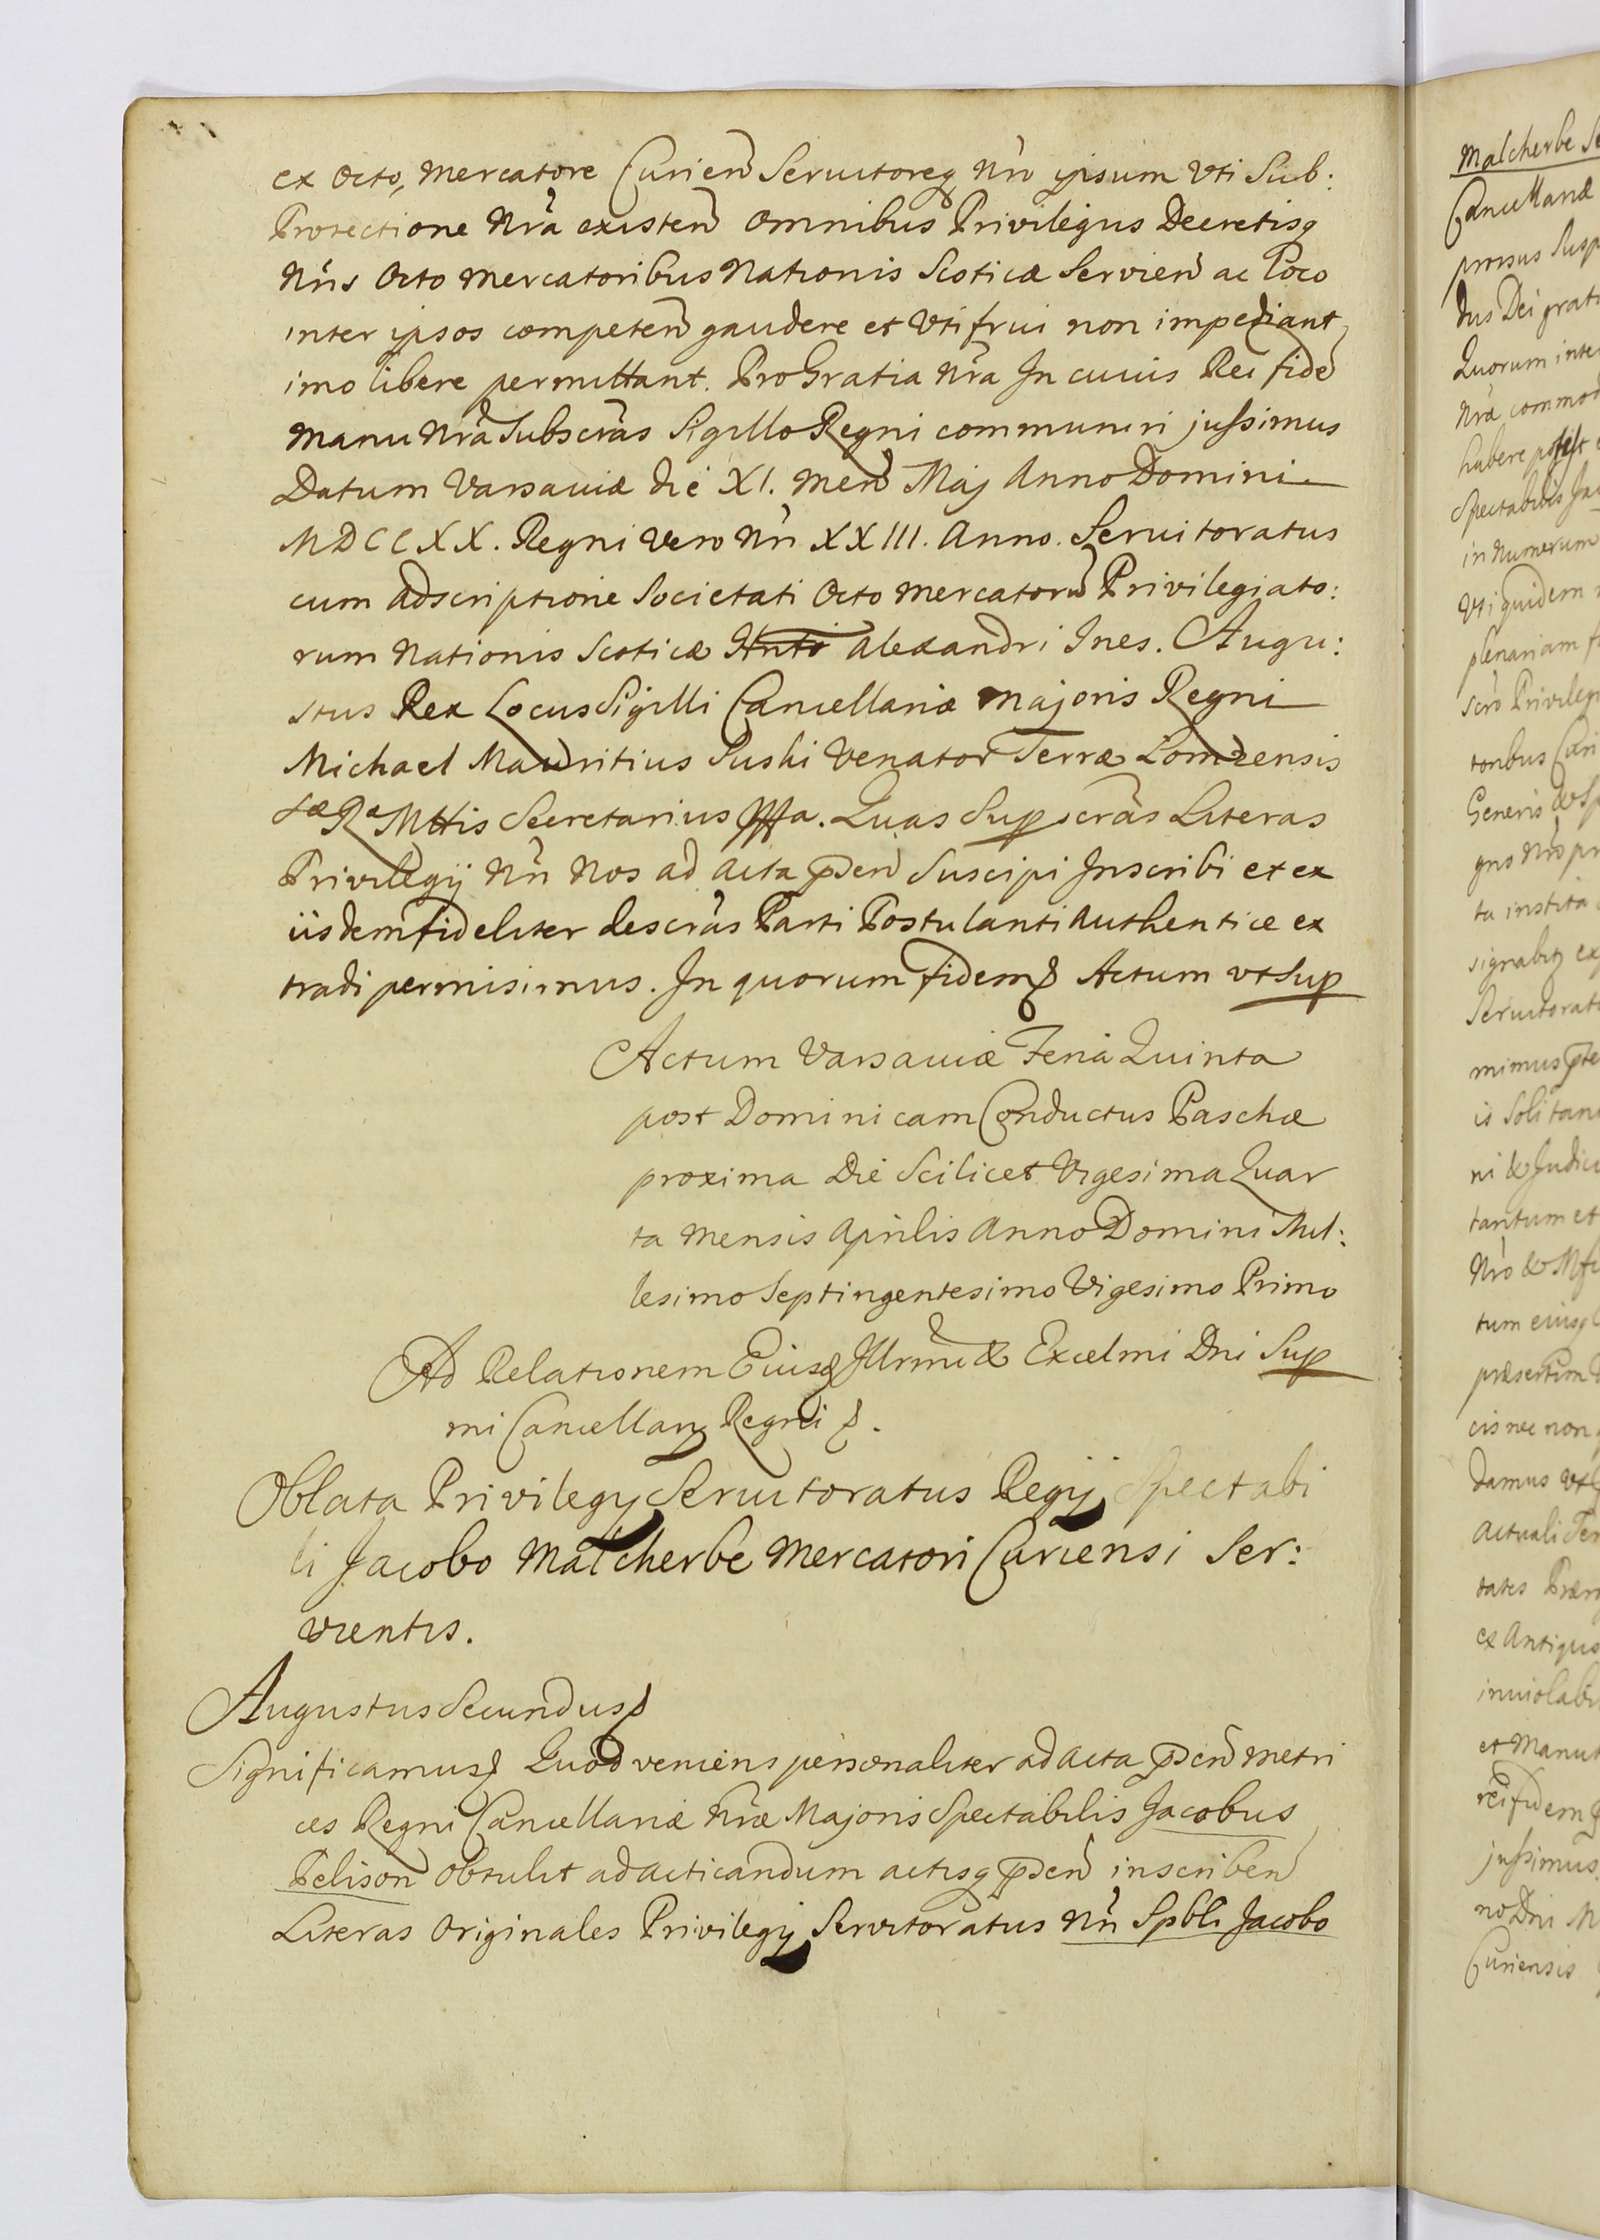 ex Octo, Mercatore Curien Seruitoreq nro ipsum Vti Sub:
Protectione Nra existen omnibus Privilegijs Decretisq
Nris Octo Mercatoribus Nationis Scoticæ Servien ac Loco
inter ipsos competen gaudere et Vti frui non impediant
imo libere permittant. Pro Gratia Nra In cuius Rei fide
manu Nra Subscras Sigillo Regni communiri jussimus
Datum Varsauiæ die XI. men Maj Anno Domini
MDCCXX. Regni Vero Nri XXIII. Anno. Seruitoratus
cum adscriptione Societati Octo Mercatoru Privilegiato:
rum Nationis Scoticæ Alexandri Ines. Augu:
stus Rex Locus Sigilli Cancellariæ Majoris Regni
Michael Mauritius Suski Venator Terræ Lomzensis
Sæ Ræ Mttis Secretarius mppa. Quas Supscras Literas
Privilegij Nri Nos ad Acta psen Suscipi Inscribi et ex
iisdem fideliter descras Parti Postulanti Authentice ex
tradi permisimus. In quorum fidem &. Actum vt Sup
Actum Varsauiæ Feria Quinta
post Dominicam Conductus Paschæ
proxima Die Scilicet Vigesima Quar
ta mensis Aprilis Anno Domini Mil:
lesimo Septingentesimo Vigesimo Primo
Ad Relationem Eiusq Illrmi & Excelmi Dni Sup
mi Cancellarij Regni &.
Oblata Privilegij Seruitoratus Regij Spectabi
li Jacobo Malcherbe Mercatori Curiensi Ser:
vientis.
Augustus Secundus &
Significamus & Quod veniens personaliter ad Acta psen Metri
ces Regni Cancellariæ Nræ Majoris Spectabilis Jacobus
Pelison obtulit ad acticandum actisq psen inscriben
Literas Originales Privilegij Servitoratus Nri Spbli Jacobo
Malcherbe
Cancellariæ
prorsus Susp
dus Dei grati
Quorum inte
Nræ commod
habere potest
Spectabilis Ja
in numerum
Vti quidem
plenariam f
Privileg
toribus Curi
Generis & Sp
ta instita
signabit ex
Seruitorat
is Soli tan
ni & Judici
tantum et
tum eiusq
præsertim
cis nec non
damus vt
actuali Ter
tates Præro
ex Antiquo
inviolabi
et Manut
rei fidem &
jussimus
no Dni M
Curiensis